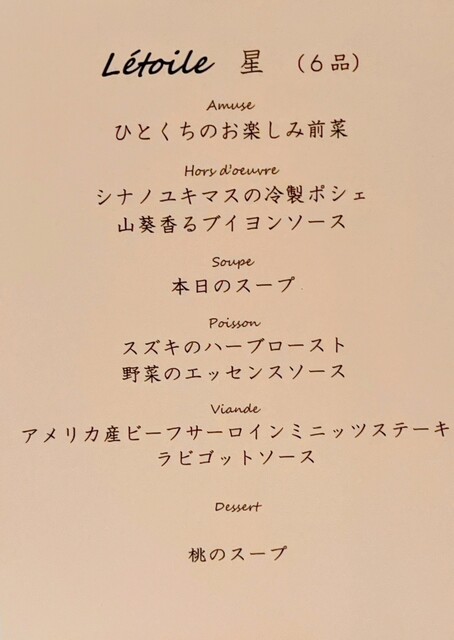 Létoile 星 (6品)
Amuse
ひとくちのお楽しみ前菜
Hors d'oeuvre
シナノユキマスの冷製ポシェ
山葵香るブイヨンソース
Soupe
本日のスープ
Poisson
スズキのハーブロースト
野菜のエッセンスソース
Viande
アメリカ産ビーフサーロインミニッツステーキ
ラビゴットソース
Dessert
桃のスープ